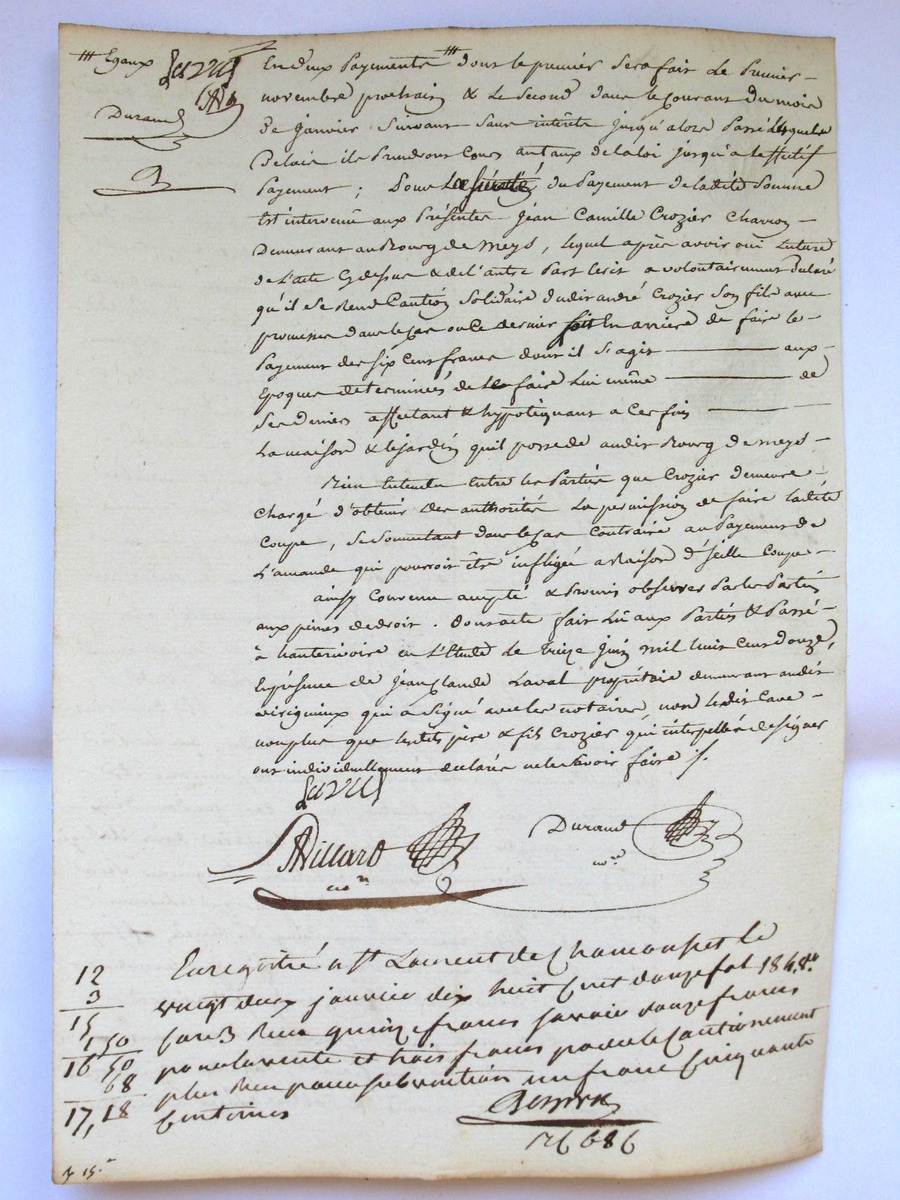 Egaux
Laval
Durand
En deux payements dont le premier sera fait le Premier
novembre prochain & le second dans le courant du mois
De janvier suivant sans intérêts jusqu'alors Passé lesquels
Delais ils Prendront cours au taux de la loi jusqu'a l'effectif
Payement ; Pour la sureté du Payement de ladite Somme
Est intervenu aux Présentes Jean Camille Crozier Charron
Demeurant au Bourg de Meys, lequel après avoir oui lecture
de l'acte cy dessus & de l'autre Part ecrit a volontairement declaré
qu'il se rend Caution Solidaire dudit andré Crozier Son fils avec
promesse dans le cas ou ce dernier soit En arriere de faire le
Payement des six cent francs dont il s'agit aux
Epoques determinées de le faire lui même de
Ses deniers affectant & hypotéquant a Ces fins
La maison & le jardin qu'il possede audit Bourg de Meys
Bien Entendu entre les Parties que Crozier demeure
chargé d'obtenir des authorités la permission de faire ladite
coupe, se soumettant dans le cas contraire au Payement de
L'amande qui pourroit être infligée a Raison d'jcelle Coupe
ainsy Convenu accepté & Promis observer Par les Parties
aux peines de droit. Dont acte fait Lû aux Parties & Passé
à hauterivoire en L'Etude le treize juin mil huit cent douze,
En présence de Jean Claude Laval propriétaire demeurant audit
qui a signé avec les notaires, non ledit Cave
non plus que lesdits père & fils Crozier qui interpellés de signer
ont individuellement declarés ne le savoir faire
Laval
Villard
Durand
nre
Enregistré a St Laurent de Chamousset le
vingt deux janvier dix huit cent douze fol 184
case 3 Reçu quinze francs savoir douze francs
pour la vente et trois francs pour le Cautionnement
plus Reçu pour subvention un franc Cinquante
Centimes
12
3
15
1 50
16 50
68
17,18